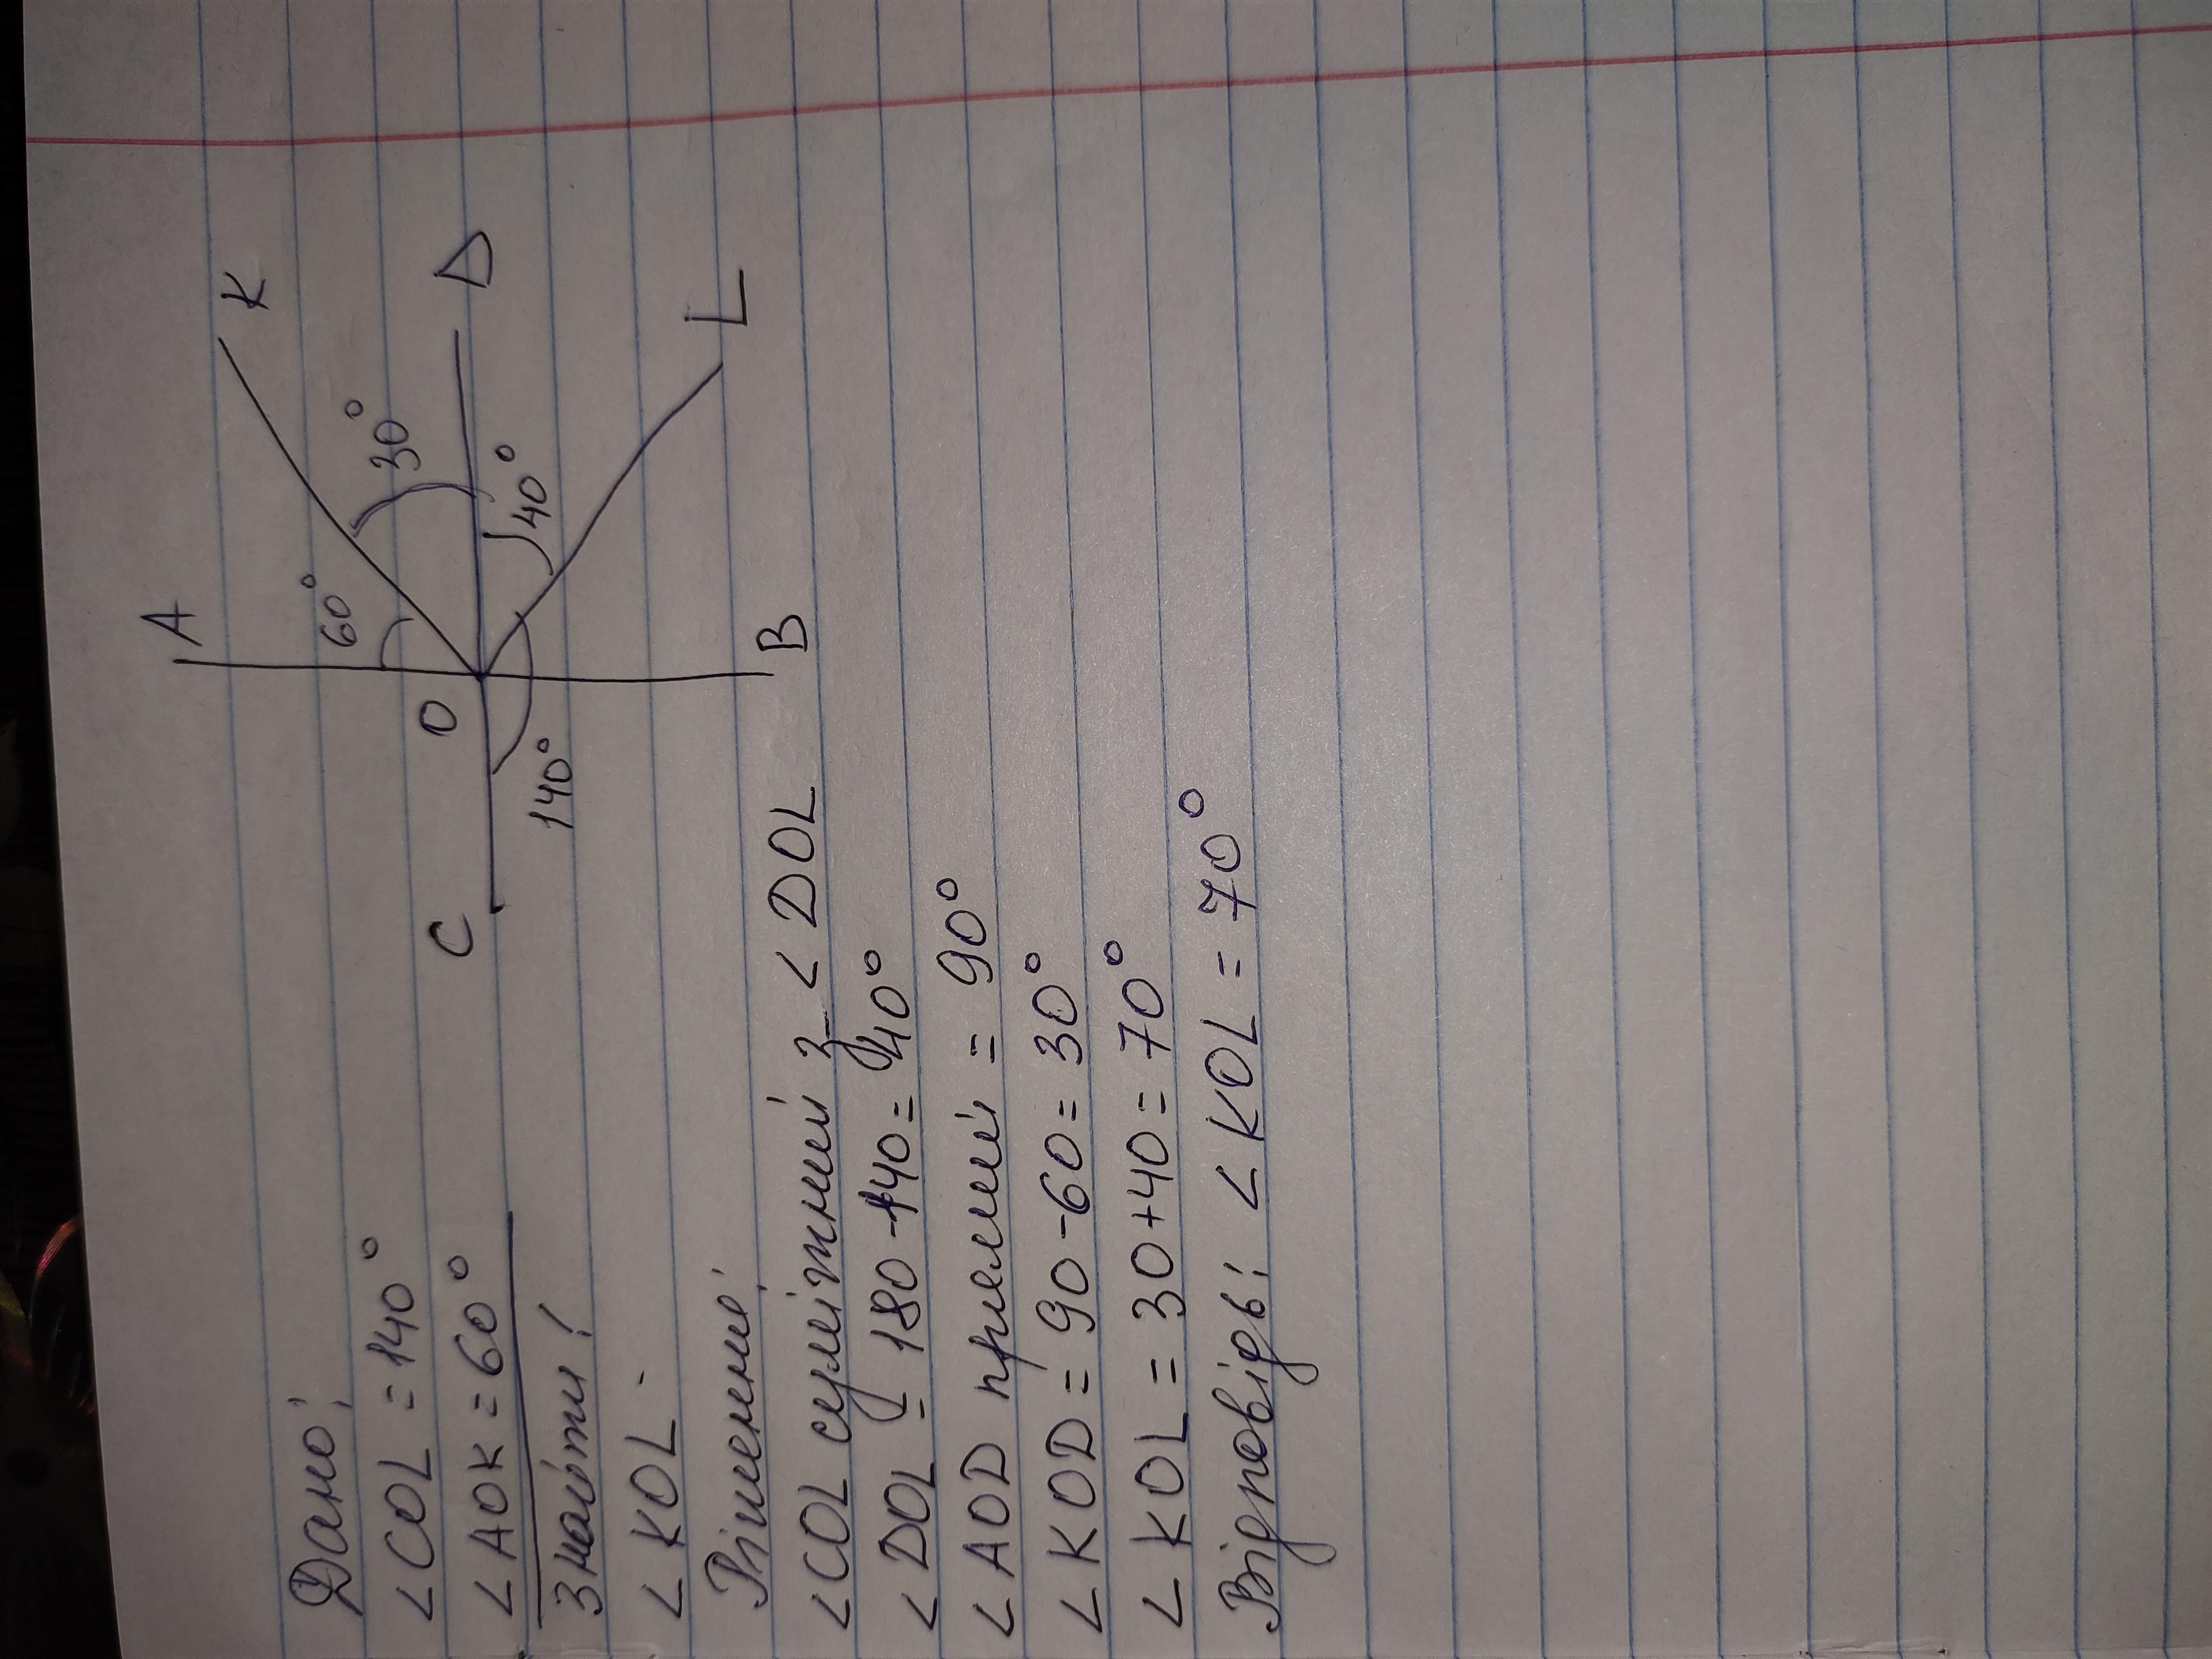 Дано:
< COL = 140°
< AOK = 60°
Знайти:
< KOL -
Рішення:
< COL суміжний з < DOL
< DOL = 180 - 140 = 40°
< AOD прямий = 90°
< KOD = 90 - 60 = 30°
< KOL = 30 + 40 = 70°
Відповідь: < KOL = 70°
A
K
60°
30°
C
O
D
40°
140°
L
B